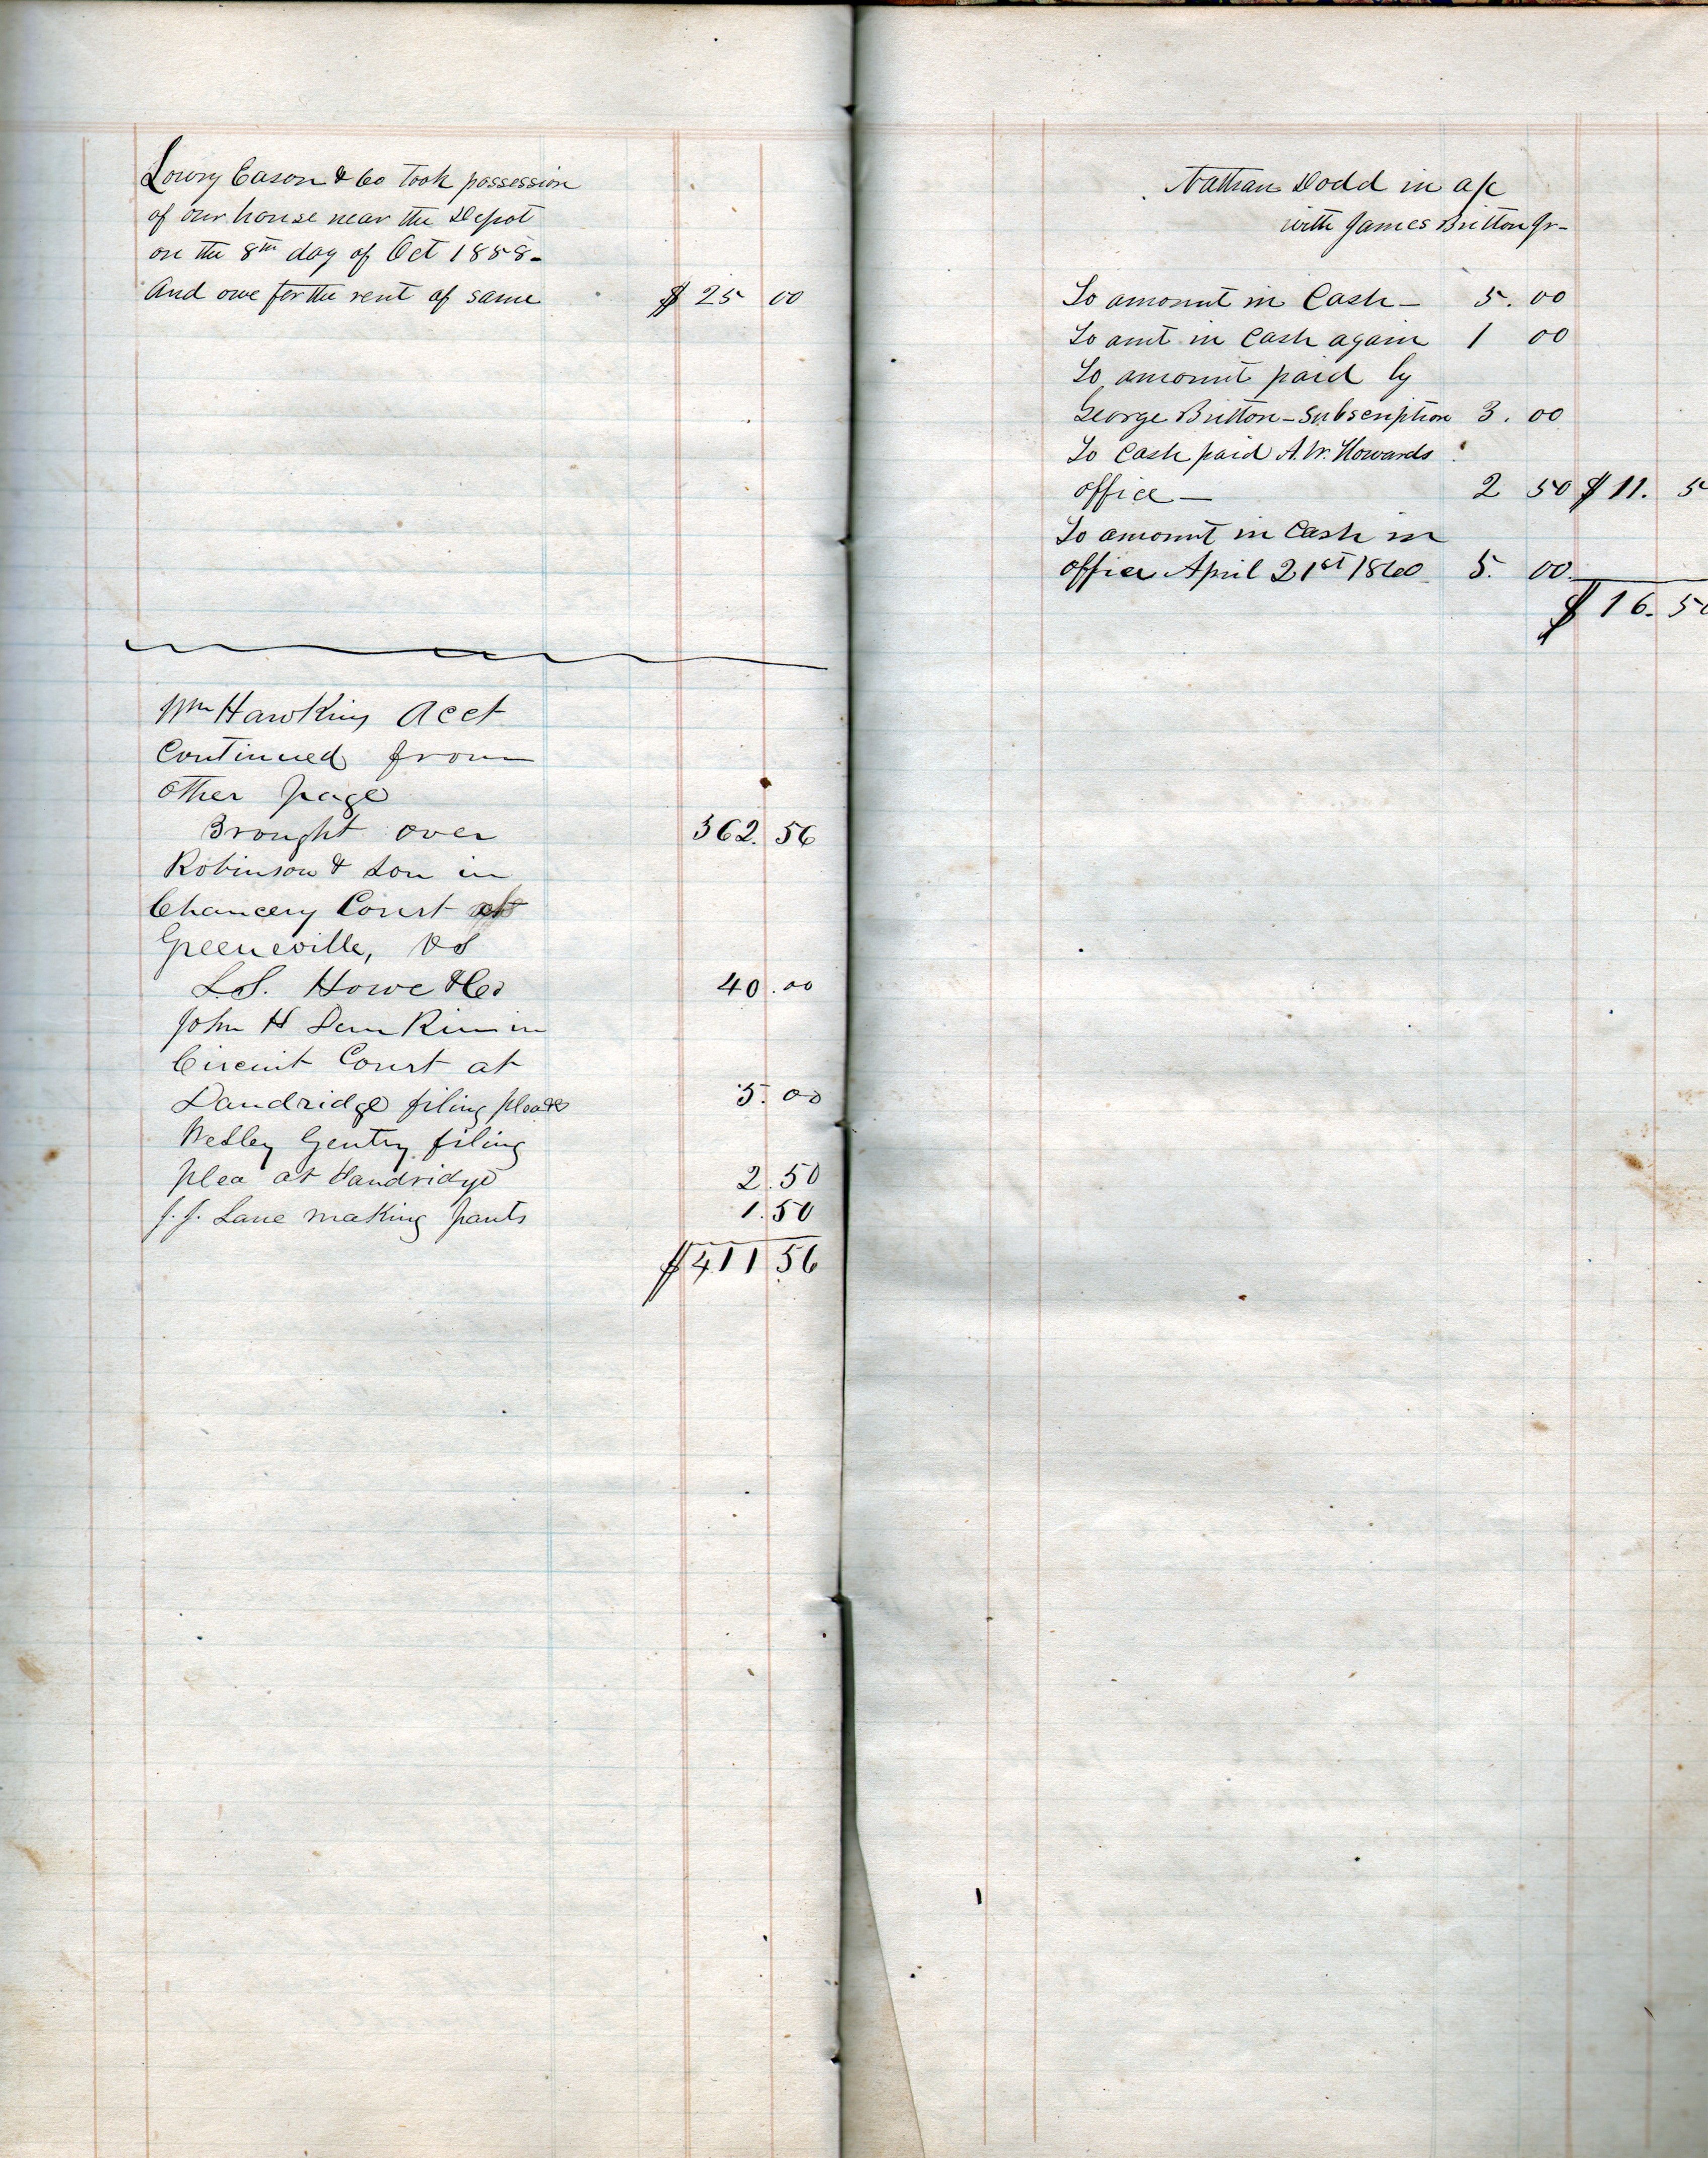 Lowry Eason & Co took possession
of our house near the Depot
on the 8th day of Oct 1858-
And owe for the rent of same $ 25 00
Wm Hawkins Acct
Continued from
other page
Brought over 362.56
Robinson & Son in
Chancery Court at
Greeneville, vs
L.S. Howe & Co 40.00
John H in
Circuit Court at
Dandridge filing pleas 5.00
Wesley Gentry filing
plea at Dandridge 2.50
J.J. Lane making pants 1.50
$411 56
Nathan Dodd in a/c
with James Britton Jr-
To amount in Cash- 5.00
To amt in Cash again 1 00
To amount paid by
George Britton-Subscription 3.00
To Cash paid A.W. Howards
office- 2 50 $11. 5
To amount in Cash in
office April 21st 1860 5. 00.
$16.50